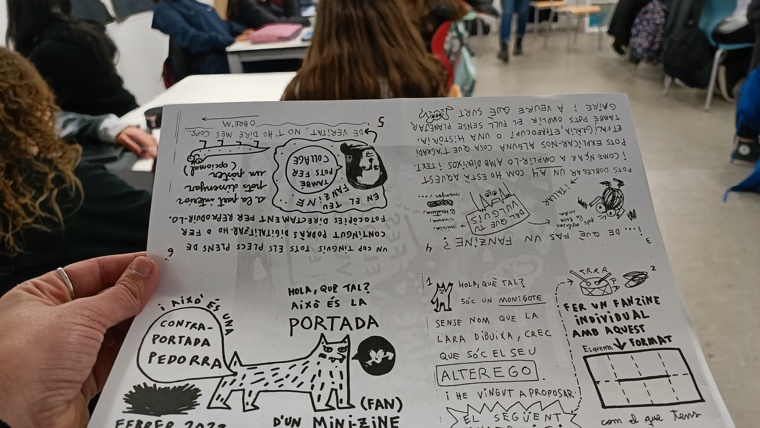 ¡ AIXÒ ÉS UNA
CONTRA-
PORTADA
PEDORRA
HOLA, QUÈ TAL?
AIXÒ ÉS LA
PORTADA
D'UN MINI-ZINE
(FAN)
1
HOLA, QUÈ TAL?
SÓC UN MONIGOTE
SENSE NOM QUE LA
LARA DIBUIXA, CREC
QUE SÓC EL SEU
ALTEREGO
I HE VINGUT A PROPOSAR
EL SEGÜENT
2
TRRR
FER UN FANZINE
INDIVIDUAL
AMB AQUEST
FORMAT
Esquema
com el que tens
3
... DE QUÈ FAS UN FANZINE?
DEL QUE TU
VULGUIS
4
POTS DOBLEGAR UN A4 COM HO ESTÀ AQUEST
I COMENÇAR A OMPLIR-LO AMB DIBUIXOS I TEXT.
POTS EXPLICAR-NOS ALGUNA COSA QUE T'AGRADI
O UNA HISTÒRIA.
TAMBÉ POTS OMPLIR EL FULL SENSE PLANEJAR
GAIRE I A VEURE QUÈ SURT
5
EN EL TEU
FANZINE...
TAMBÉ
POTS FER
COLLAGE
DE VERITAT, NO T'HO DIRÉ MÉS COPS
OBRE'M
6
UN COP TINGUIS TOTS ELS PLECS PLENS DE
CONTINGUT PODRÀS DIGITALITZAR-LO O FER
FOTOCÒPIES DIRECTAMENT PER REPRODUIR-LO.
a la part interior
pots dissenyar
un pòster
(opcional)